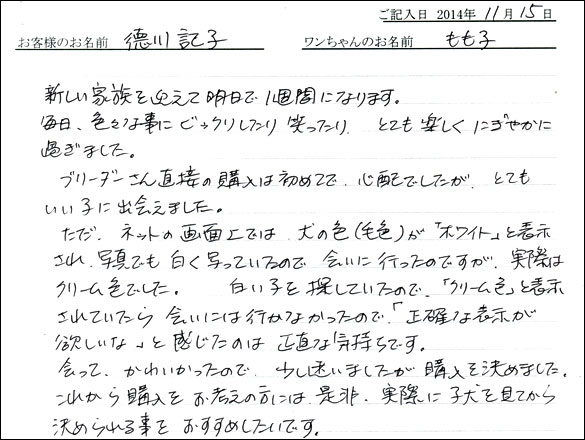 ご記入日 2014年 11月 15日
お客様のお名前 徳川 記子 ワンちゃんのお名前 もも子
新しい家族を迎えて明日で1週間になります。
毎日、色々な事にビックリしたり 笑ったり、とても楽しくにぎやかに
過ぎました。
ブリーダーさん直接の購入は初めてで、心配でしたが、とても
いい子に出会えました。
ただ、ネットの画面上では 犬の色(毛色)が「ホワイト」と表示
され、写真でも白く写っていたので 会いに行ったのですが、実際は
クリーム色でした。 白い子を探していたので、「クリーム色」と表示
されていたら 会いには行かなかったので、「正確な表示が
欲しいな」と感じたのは 正直な気持ちです。
会って、かわいかったので、少し迷いましたが 購入を決めました。
これから購入をお考えの方には 是非、実際に子犬を見てから
決められる事を おすすめしたいです。